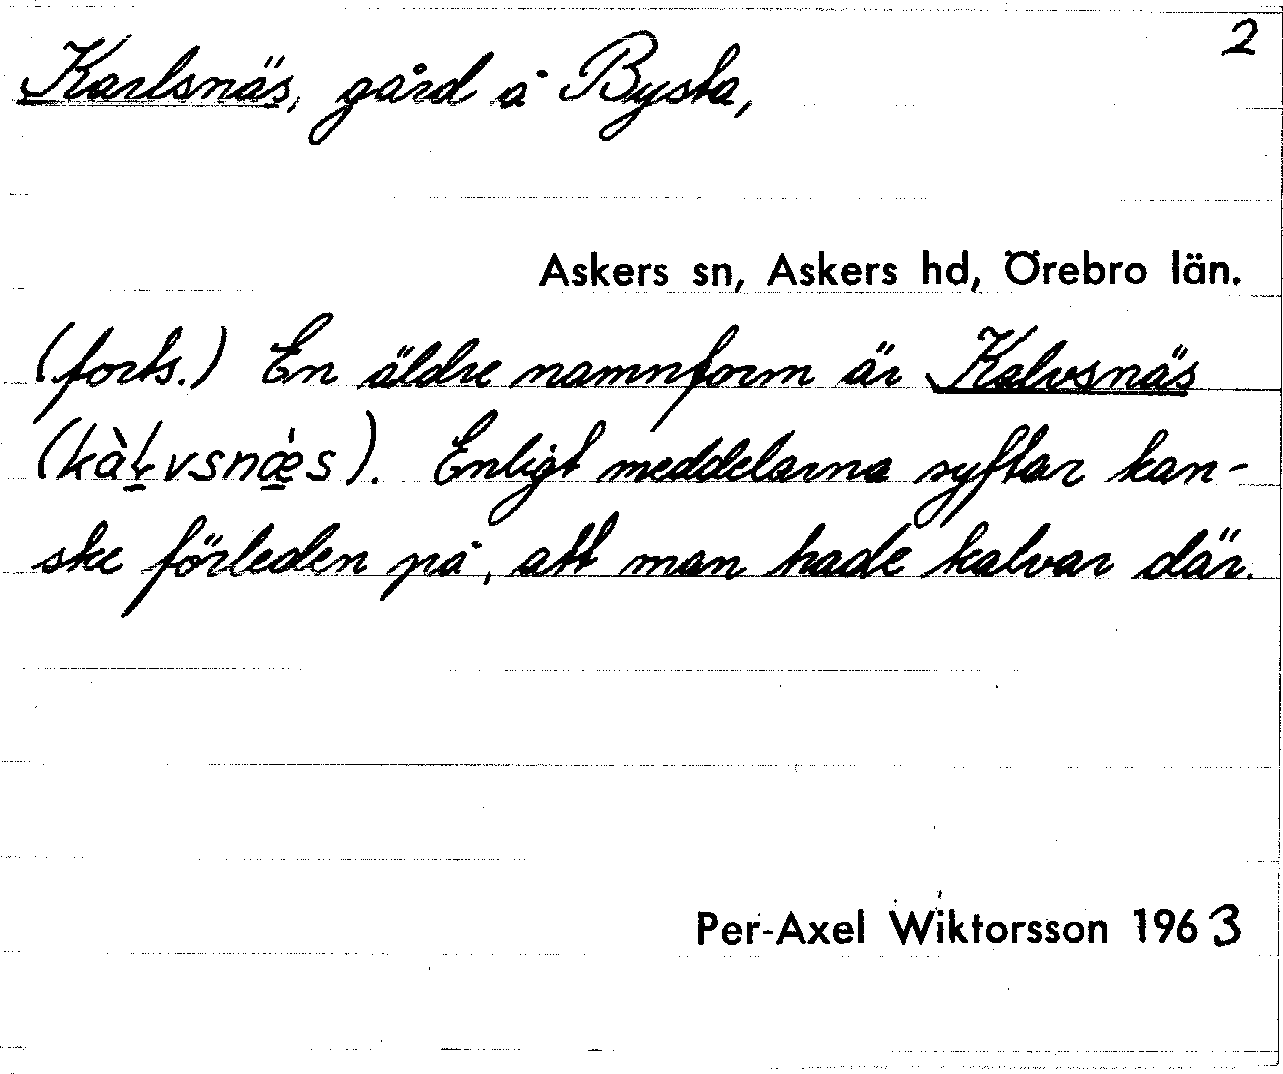 2
Karlsnäs, gård å Bysta,
Askers sn, Askers hd, Örebro län.
(forts.) En äldre namnform är Kalvsnäs
(kàḷvsnæ̀s). Enligt meddelarna syftar kan-
ske förleden på, att man hade kalvar där.
Per-Axel Wiktorsson 1963